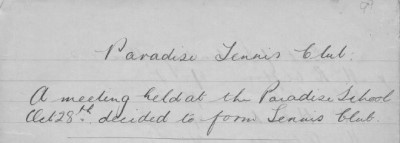 Paradise Tennis Club.
A meeting held at the Paradise School
Oct 28th. decided to form Tennis Club.